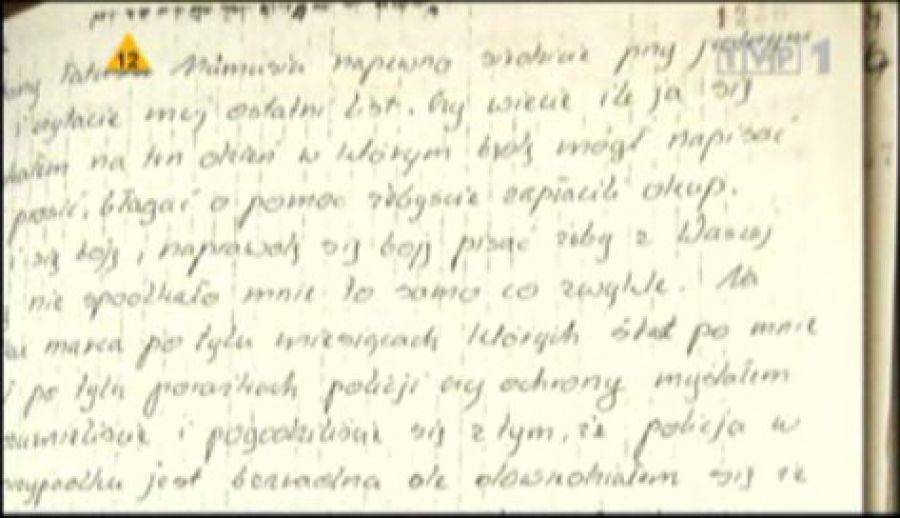 12
TVP 1
Mamusiu napewno siedzicie przy
i czytacie mój ostatni list. Czy wiecie ile ja się
na ten dzień w którym będę mógł napisać
prosić, błagać o pomoc żebyście zapłacili okup.
i się boję, naprawdę się boję pisać żeby z Waszej
nie spotkało mnie to samo co zwykle. Na
marca po tylu miesiącach których ślad po mnie
i po tylu porażkach policji czy ochrony myślałem
i pogodziliście się z tym, że policja w
jest bezradna ale dowiedziałem się że